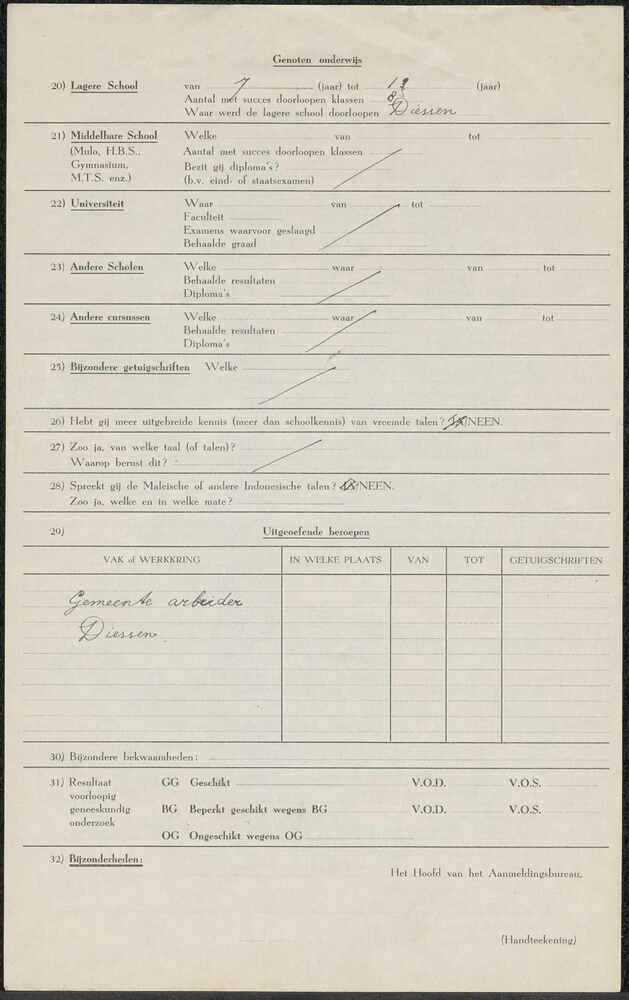 Genoten onderwijs
20) Lagere School van 7 (jaar) tot 13 (jaar)
Aantal met succes doorloopen klassen 8
Waar werd de lagere school doorloopen Diessen
21) Middelbare School Welke van tot
(Mulo, H.B.S., Aantal met succes doorloopen klassen
Gymnasium, Bezit gij diploma's?
M.T.S. enz.) (b.v. eind- of staatsexamen)
22) Universiteit Waar van tot
Faculteit
Examens waarvoor geslaagd
Behaalde graad
23) Andere Scholen Welke waar van tot
Behaalde resultaten
Diploma's
24) Andere cursussen Welke waar van tot
Behaalde resultaten
Diploma's
25) Bijzondere getuigschriften Welke
26) Hebt gij meer uitgebreide kennis (meer dan schoolkennis) van vreemde talen? JA/NEEN.
27) Zoo ja, van welke taal (of talen)?
Waarop berust dit?
28) Spreekt gij de Maleische of andere Indonesische talen? JA/NEEN.
Zoo ja, welke en in welke mate?
29) Uitgeoefende beroepen
VAK of WERKKRING IN WELKE PLAATS VAN TOT GETUIGSCHRIFTEN
Gemeente arbeider
Diessen
30) Bijzondere bekwaamheden:
31) Resultaat GG Geschikt V.O.D. V.O.S.
voorloopig
geneeskundig BG Beperkt geschikt wegens BG V.O.D. V.O.S.
onderzoek
OG Ongeschikt wegens OG
32) Bijzonderheden:
Het Hoofd van het Aanmeldingsbureau,
(Handteekening)